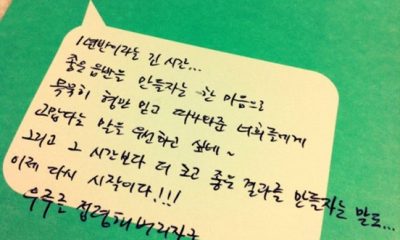 1년반이라는 긴 시간...
좋은 음반을 만들자는 한 마음으로
묵묵히 형만 믿고 따라와준 너희들에게
고맙다는 말을 우선하고 싶네~
그리고 그 시간보다 더 크고 좋은 결과를 만들자는 말도...
이제 다시 시작이다!!!
우주를 점령해버리자구